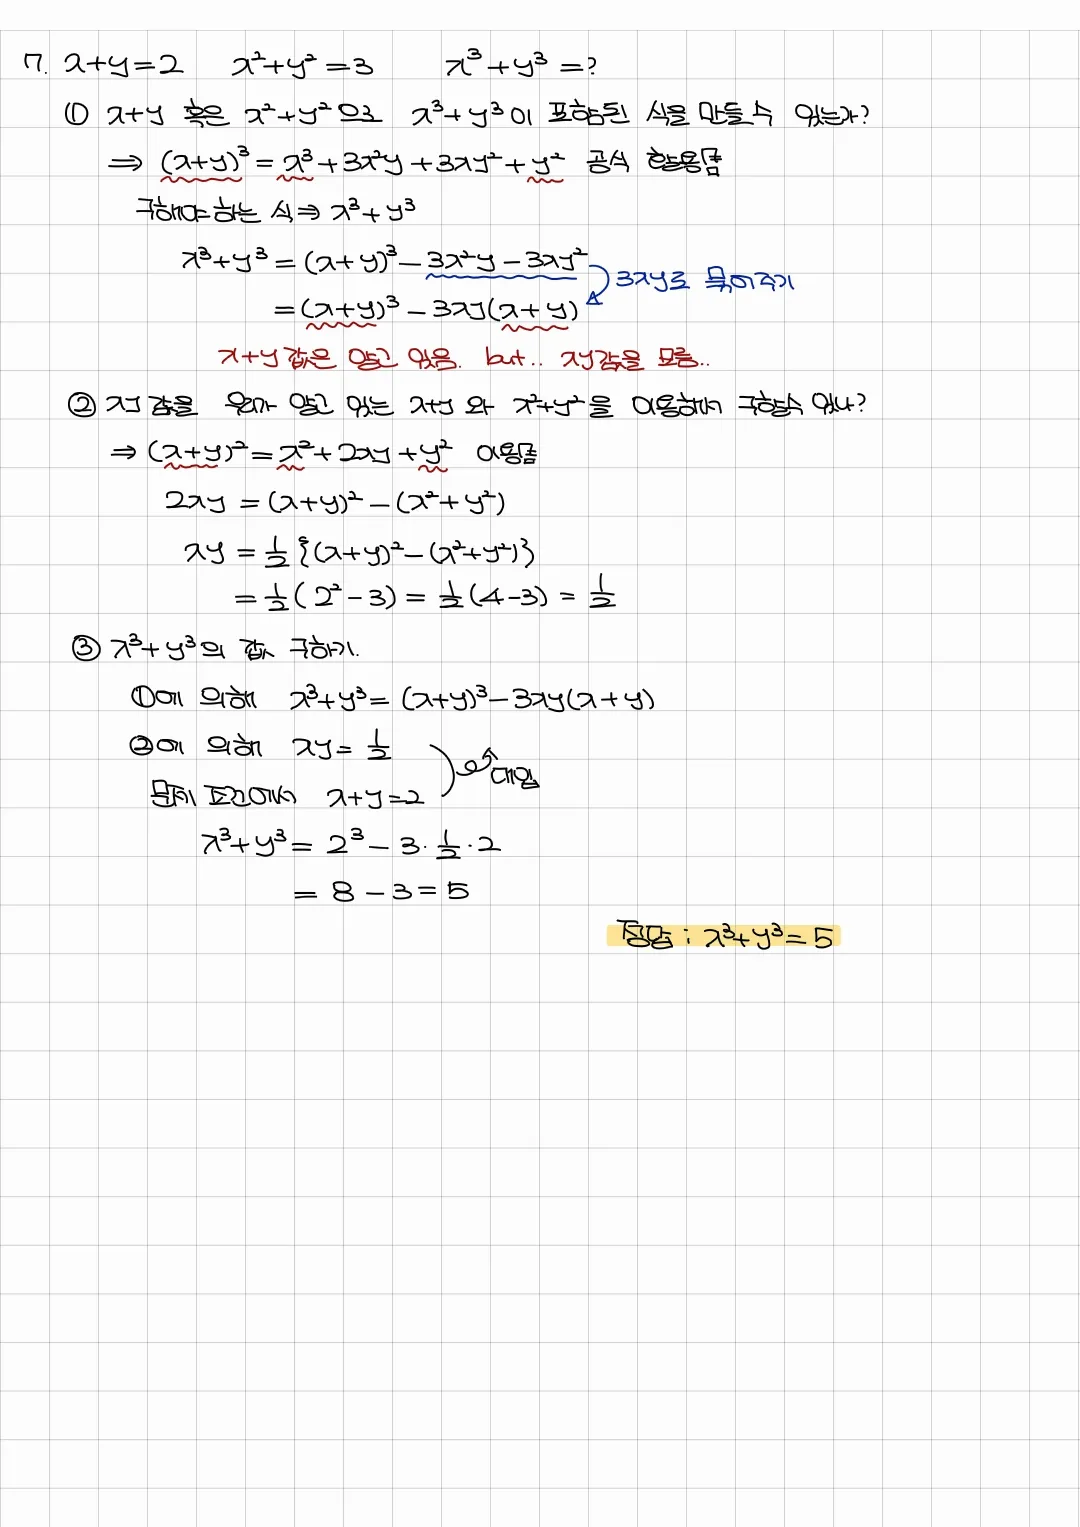 7. x+y=2 x²+y²=3 x³+y³=?
① x+y 혹은 x²+y²으로 x³+y³이 포함된 식을 만들 수 있는가?
⇒ (x+y)³=x³+3x²y+3xy²+y² 공식 활용
구해야 하는 식⇒ x³+y³
x³+y³=(x+y)³-3x²y-3xy²
3xy로 묶어주기
=(x+y)³-3xy(x+y)
x+y값은 알고 있음. but.. xy값을 모름..
② xy 값을 우리가 알고 있는 x+y 와 x²+y²을 이용해서 구할수 있나?
⇒ (x+y)²=x²+2xy+y² 이용
2xy=(x+y)²-(x²+y²)
xy=½{(x+y)²-(x²+y²)}
=½(2²-3)=½(4-3)=½
③ x³+y³의 값 구하기.
①에 의해 x³+y³=(x+y)³-3xy(x+y)
②에 의해 xy=½
대입
문제 조건에서 x+y=2
x³+y³=2³-3·½·2
=8-3=5
정답 : x³+y³=5